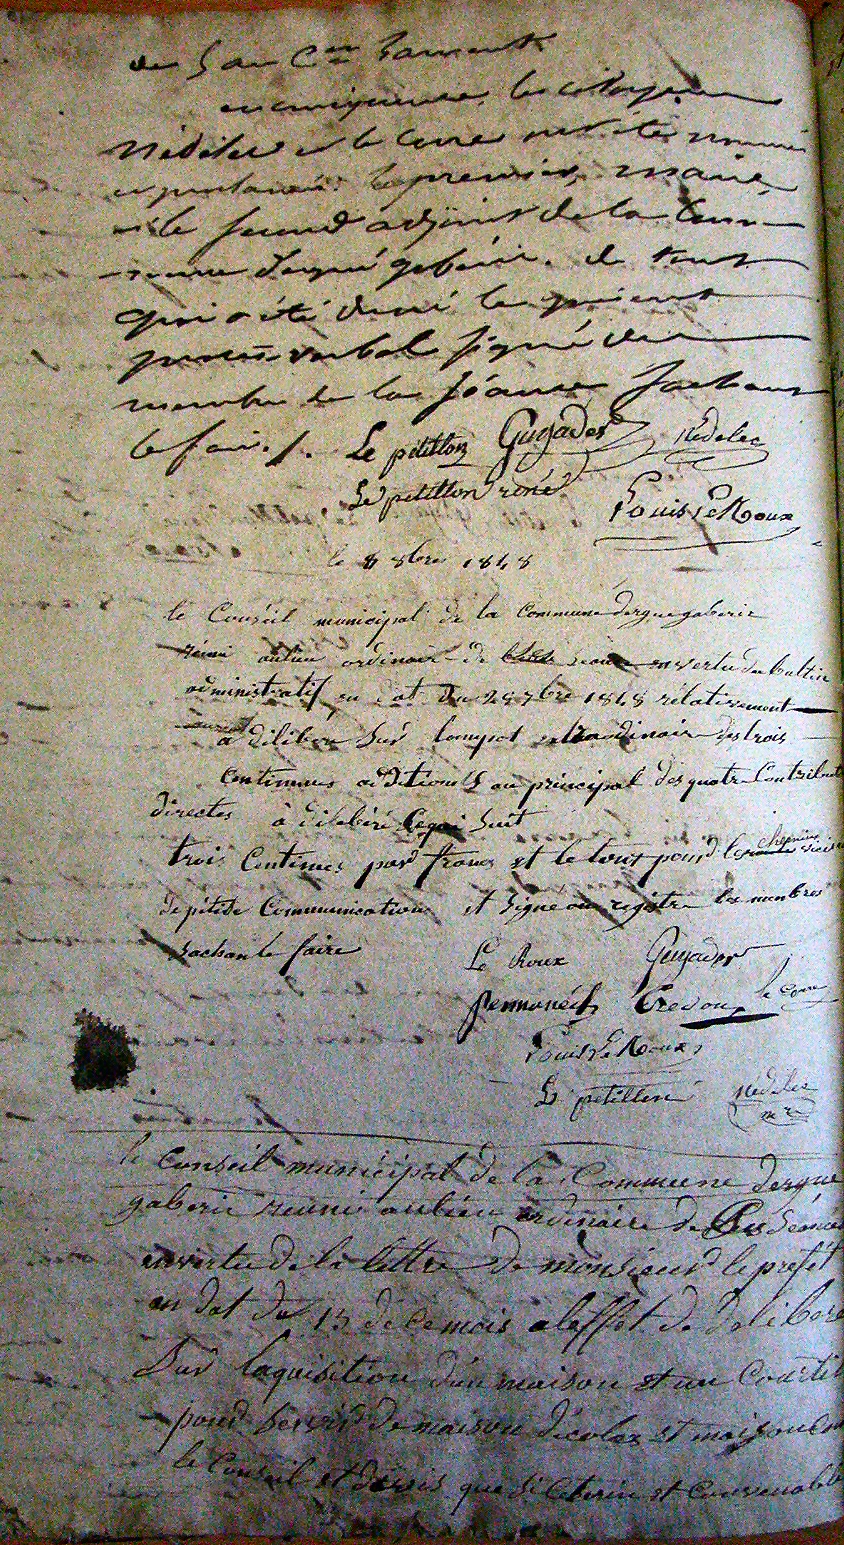 en conséquence, les citoyens
Nédélec et le Corre ont été nommés
et proclamés le premier, maire,
et le second adjoint de la Com-
mune d'ergué gabéric. de tout
qui a été dressé le présent
procès verbal signé des
membres de la séance sachant
le faire./. Le pétillon Gugader Nédélec
Le petillon réné Louis Le Roux
le 8 8bre 1848
le Conseil municipal de la Commune dergue gaberic
réuni aulieu ordinair de ses séance envertu du bultin
administratif en dat du 28 7bre 1848 rélativement
à diliberer Sur lampot extraordinair des trois
Centimmes additionels au principal des quatre Contributi
directes à dilibéré Cequi Suit
trois Centimes par franc et le tout pour les chemins vicin
depitite Communication et Signé au registre les membres
Sachan le faire Le Roux Gugader
permonéch Credou le Corre
Louis Le Roux
Le pétillon Nédélec
m re
le Conseil municipal de la Commune dergue
gaberic reuni aulieu ordinaire de Ces Séances
envertu de la lettre de monsieur le préfét
en dat du 13 de Cemois a leffet de Délibere
Sur laquisition dun maison et un Courtil
pour Servir de maison décolax et maison
le Conseil et davis que Si Cterin et Convenable